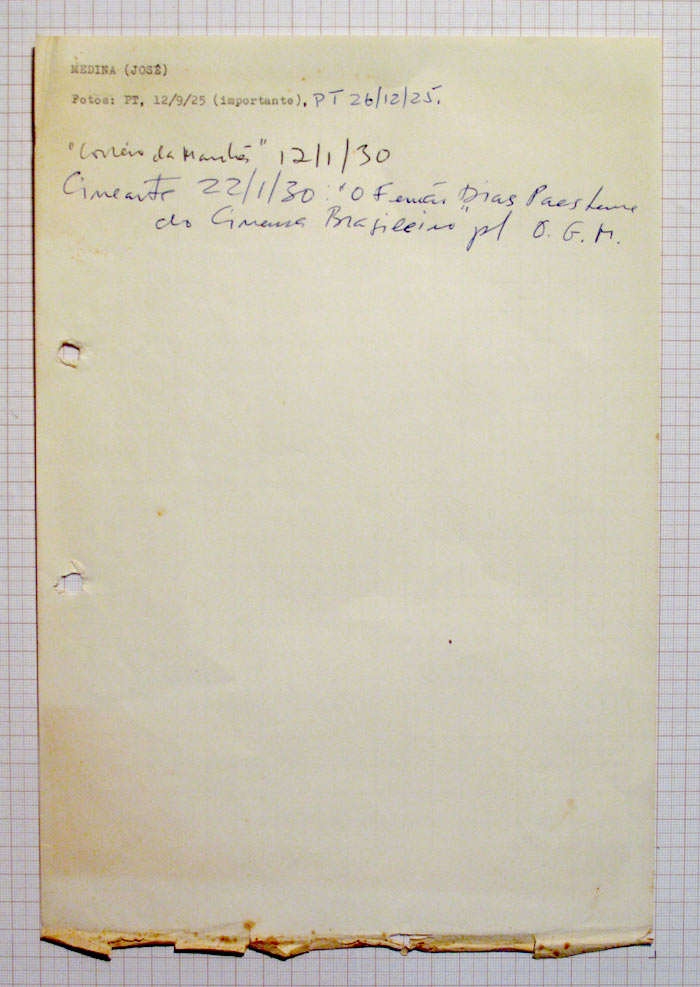 MEDINA (JOSÉ)
Fotos: PT, 12/9/25 (importante), PT 26/12/25.
"Correio da Manhã" 12/1/30
Cinearte 22/1/30: "O Fernão Dias Paes Leme
do Cinema Brasileiro" p/ O. G. M.